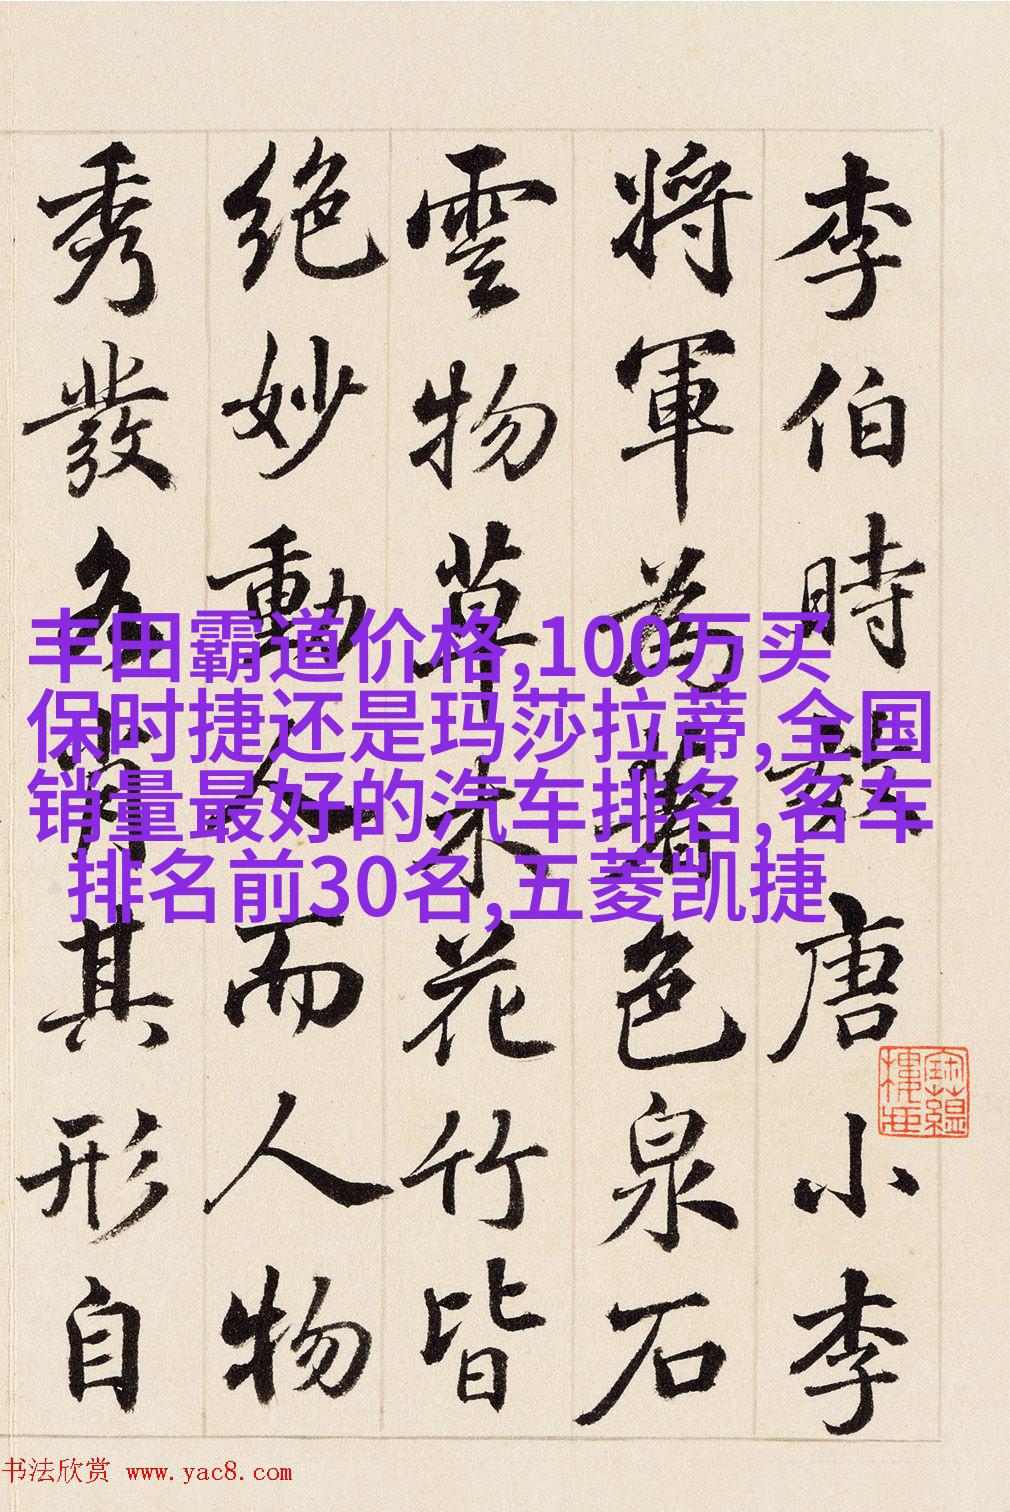 李伯時效唐小李
將軍為著色泉石
雲物草木花竹皆
絕妙動人而人物
秀發各肖其形自
丰田霸道价格,100万买
保时捷还是玛莎拉蒂,全国
销量最好的汽车排名,名车
排名前30名,五菱凯捷
书法欣赏 www.yac8.com